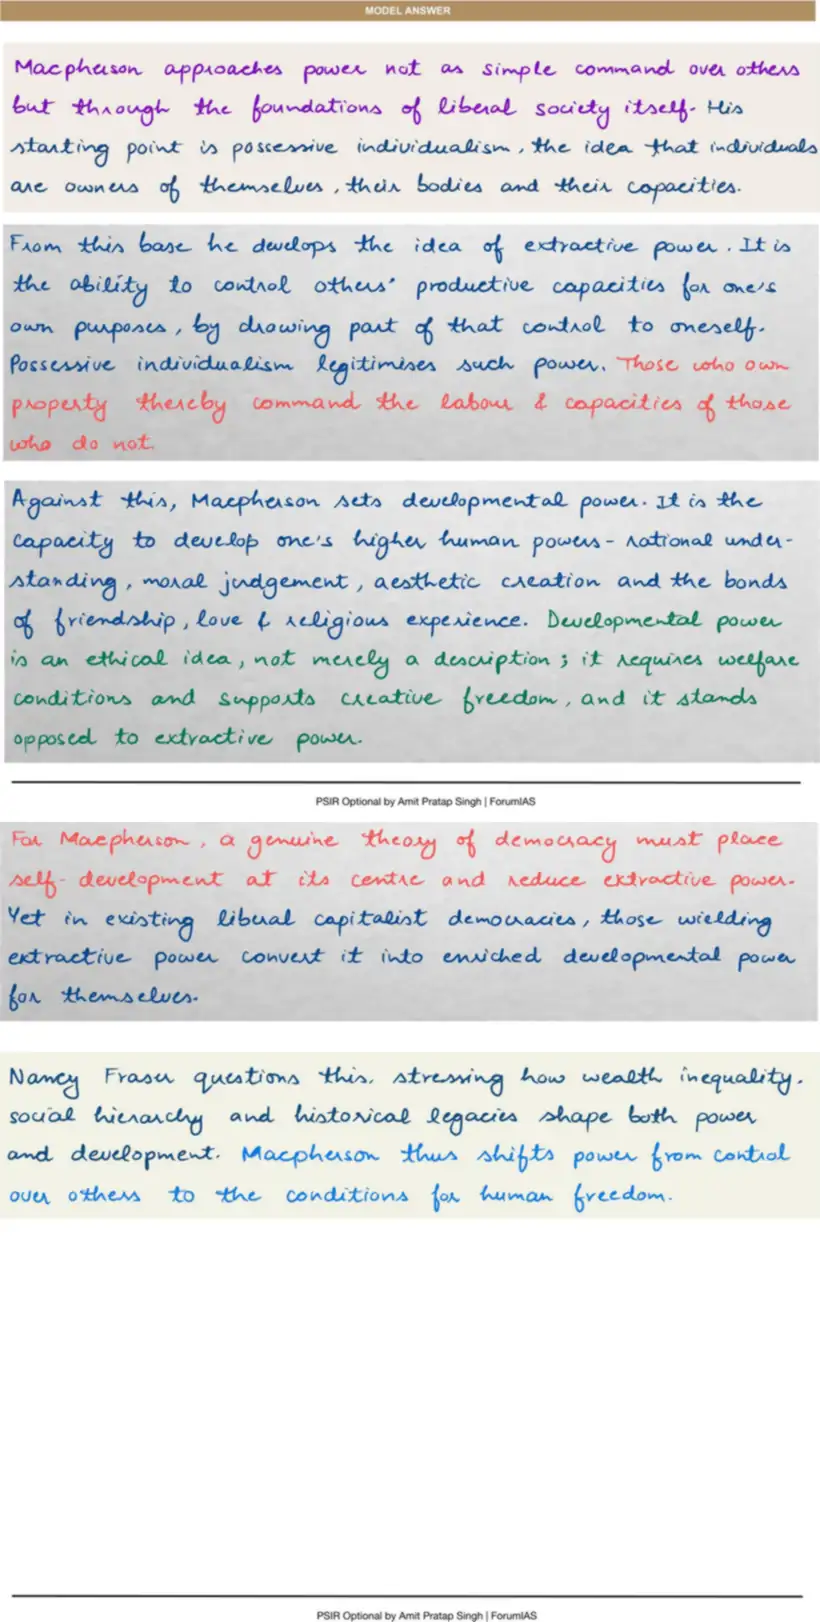 MODEL ANSWER
Macpherson approaches power not as simple command over others
but through the foundations of liberal society itself. His
starting point is possessive individualism, the idea that individuals
are owners of themselves, their bodies and their capacities.
From this base he develops the idea of extractive power. It is
the ability to control others' productive capacities for one's
own purposes, by drawing part of that control to oneself.
Possessive individualism legitimises such power. Those who own
property thereby command the labour & capacities of those
who do not.
Against this, Macpherson sets developmental power. It is the
capacity to develop one's higher human powers - rational under-
standing, moral judgement, aesthetic creation and the bonds
of friendship, love & religious experience. Developmental power
is an ethical idea, not merely a description; it requires welfare
conditions and supports creative freedom, and it stands
opposed to extractive power.
PSIR Optional by Amit Pratap Singh | ForumIAS
For Macpherson, a genuine theory of democracy must place
self-development at its centre and reduce extractive power.
Yet in existing liberal capitalist democracies, those wielding
extractive power convert it into enriched developmental power
for themselves.
Nancy Fraser questions this, stressing how wealth inequality,
social hierarchy and historical legacies shape both power
and development. Macpherson thus shifts power from control
over others to the conditions for human freedom.
PSIR Optional by Amit Pratap Singh | ForumIAS